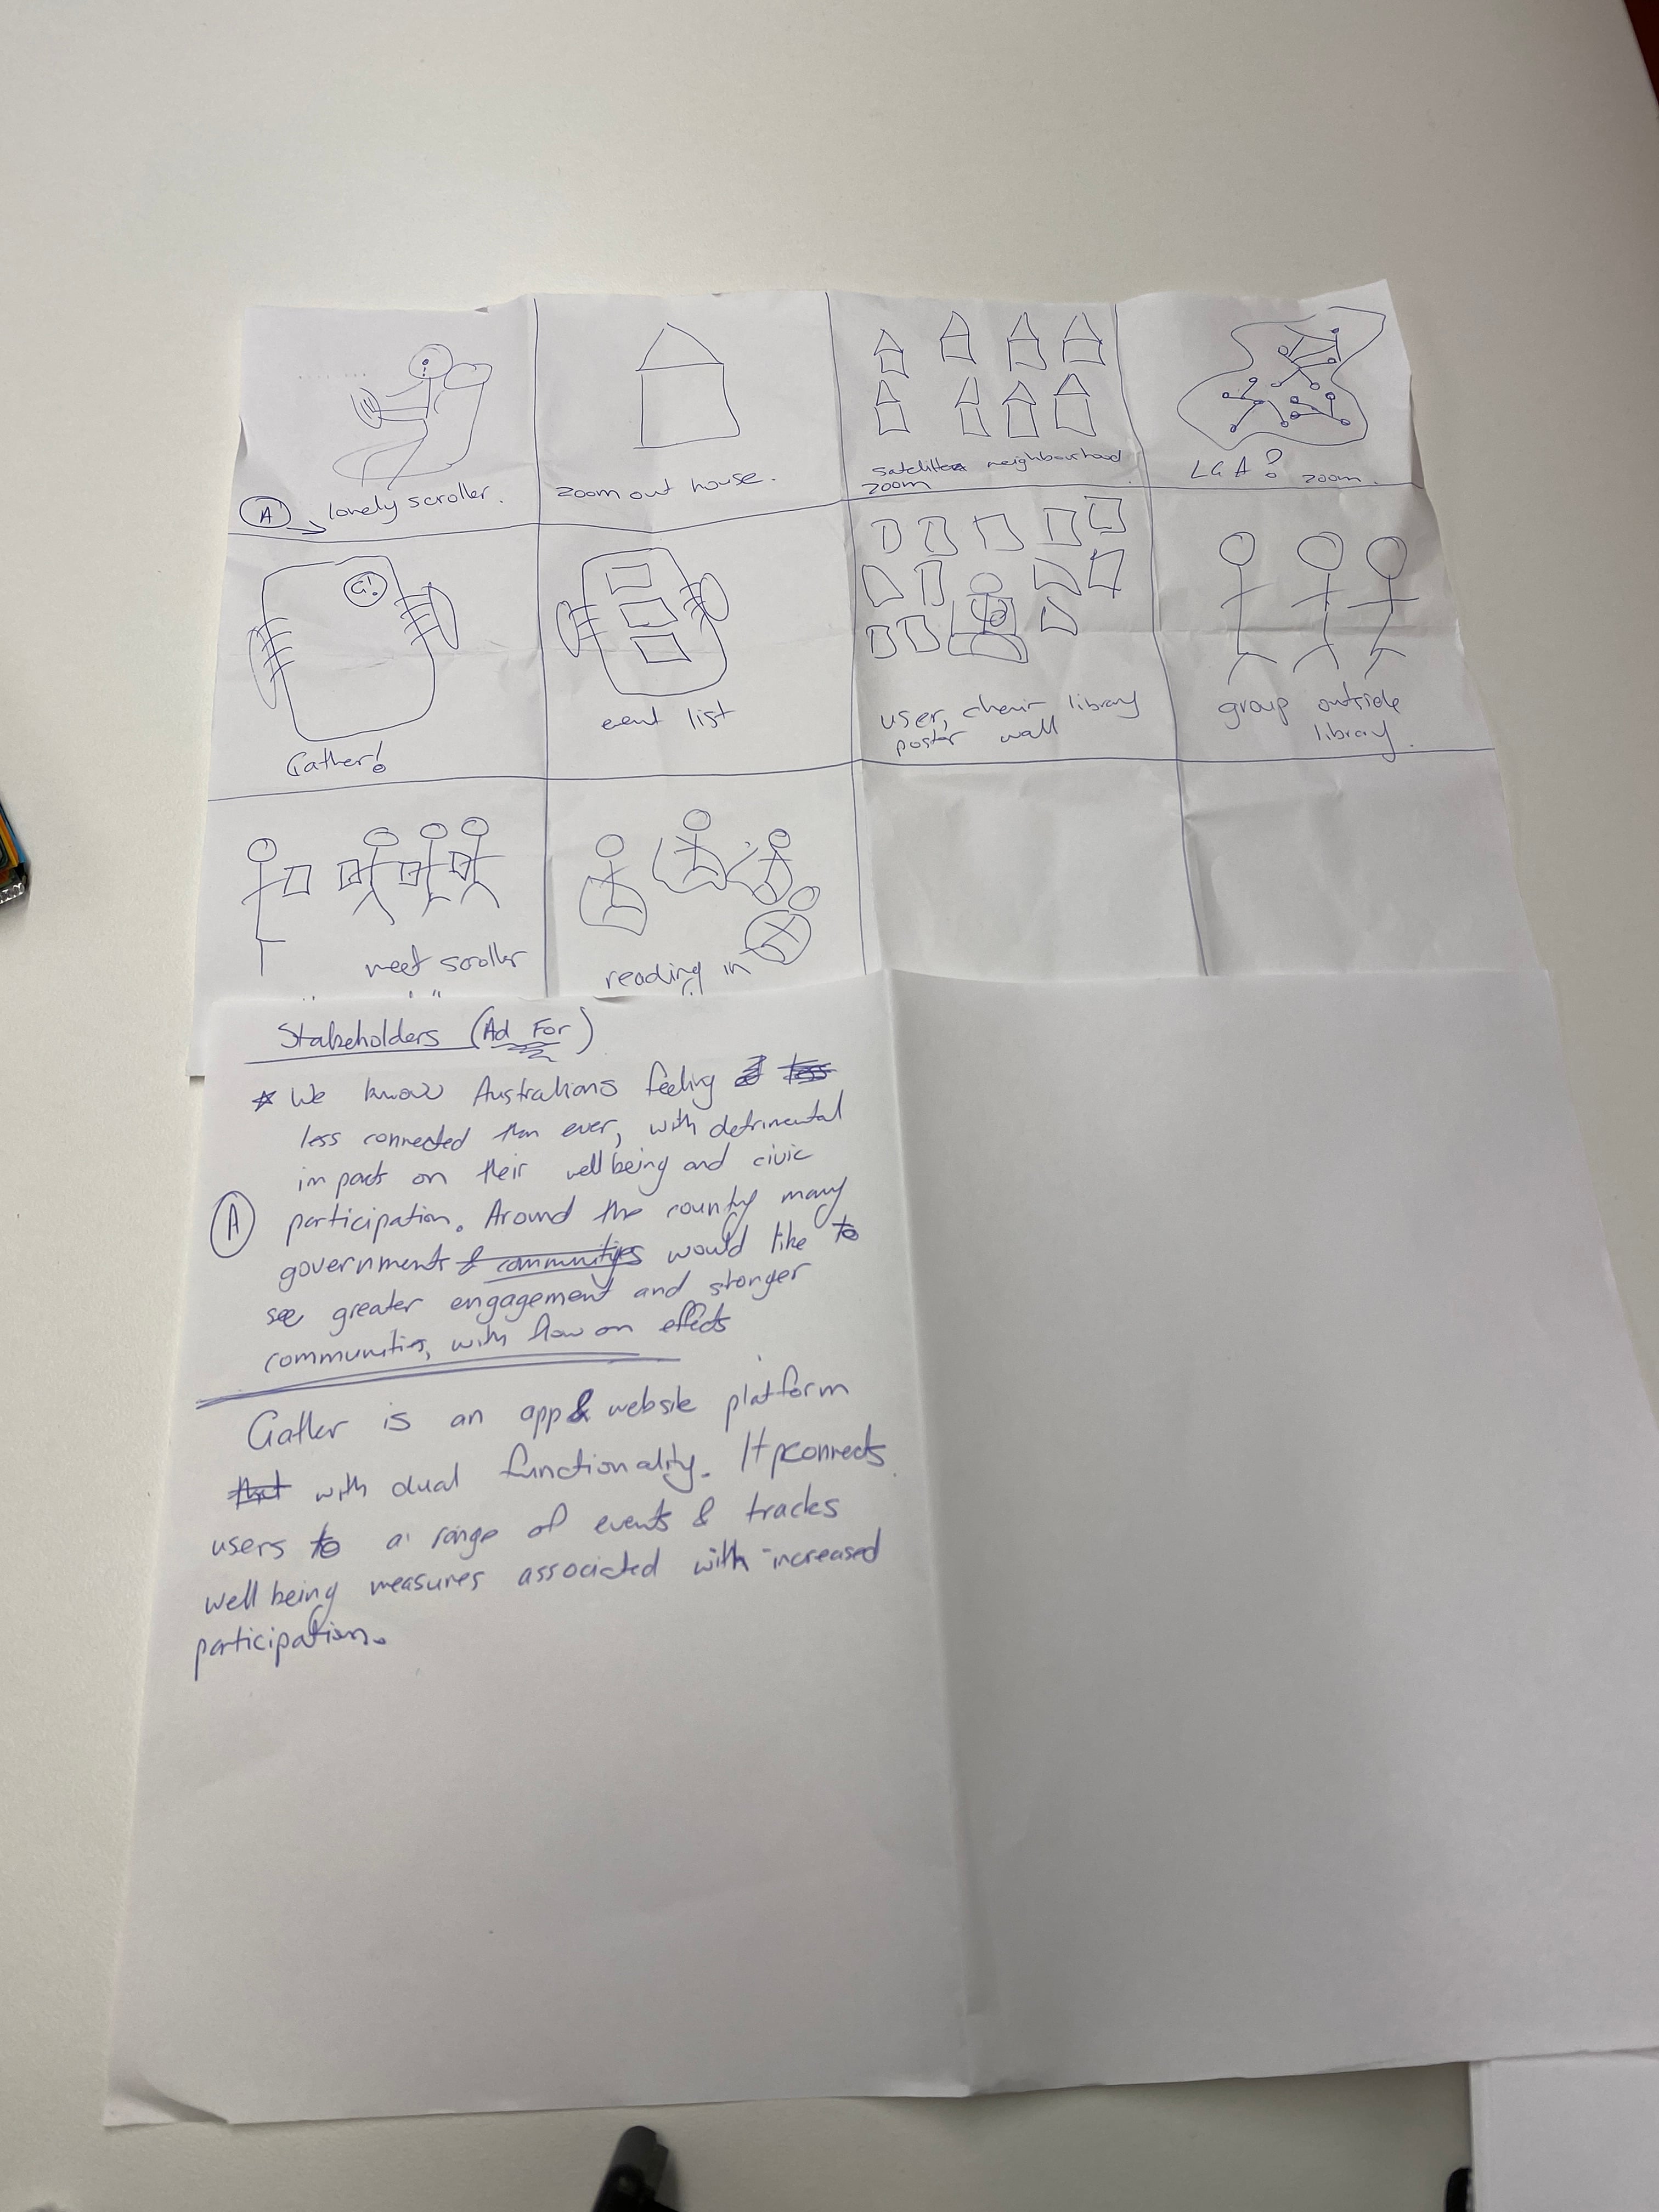 lonely scroller.
A
zoom out house.
satellite neighbourhood
zoom
LGA? zoom.
G!
Gather!
event list
user, chair library
poster wall
group outside
library.
meet scroller
reading in
Stakeholders (Ad For)
* We know Australians feeling
less connected than ever, with detrimental
impacts on their wellbeing and civic
A
participation. Around the country many
governments & communities would like to
see greater engagement and stonger
communities, with flow on effects
Gather is an app & website platform
that with dual functionality. It connects
users to a range of events & tracks
well being measures associated with increased
participation.